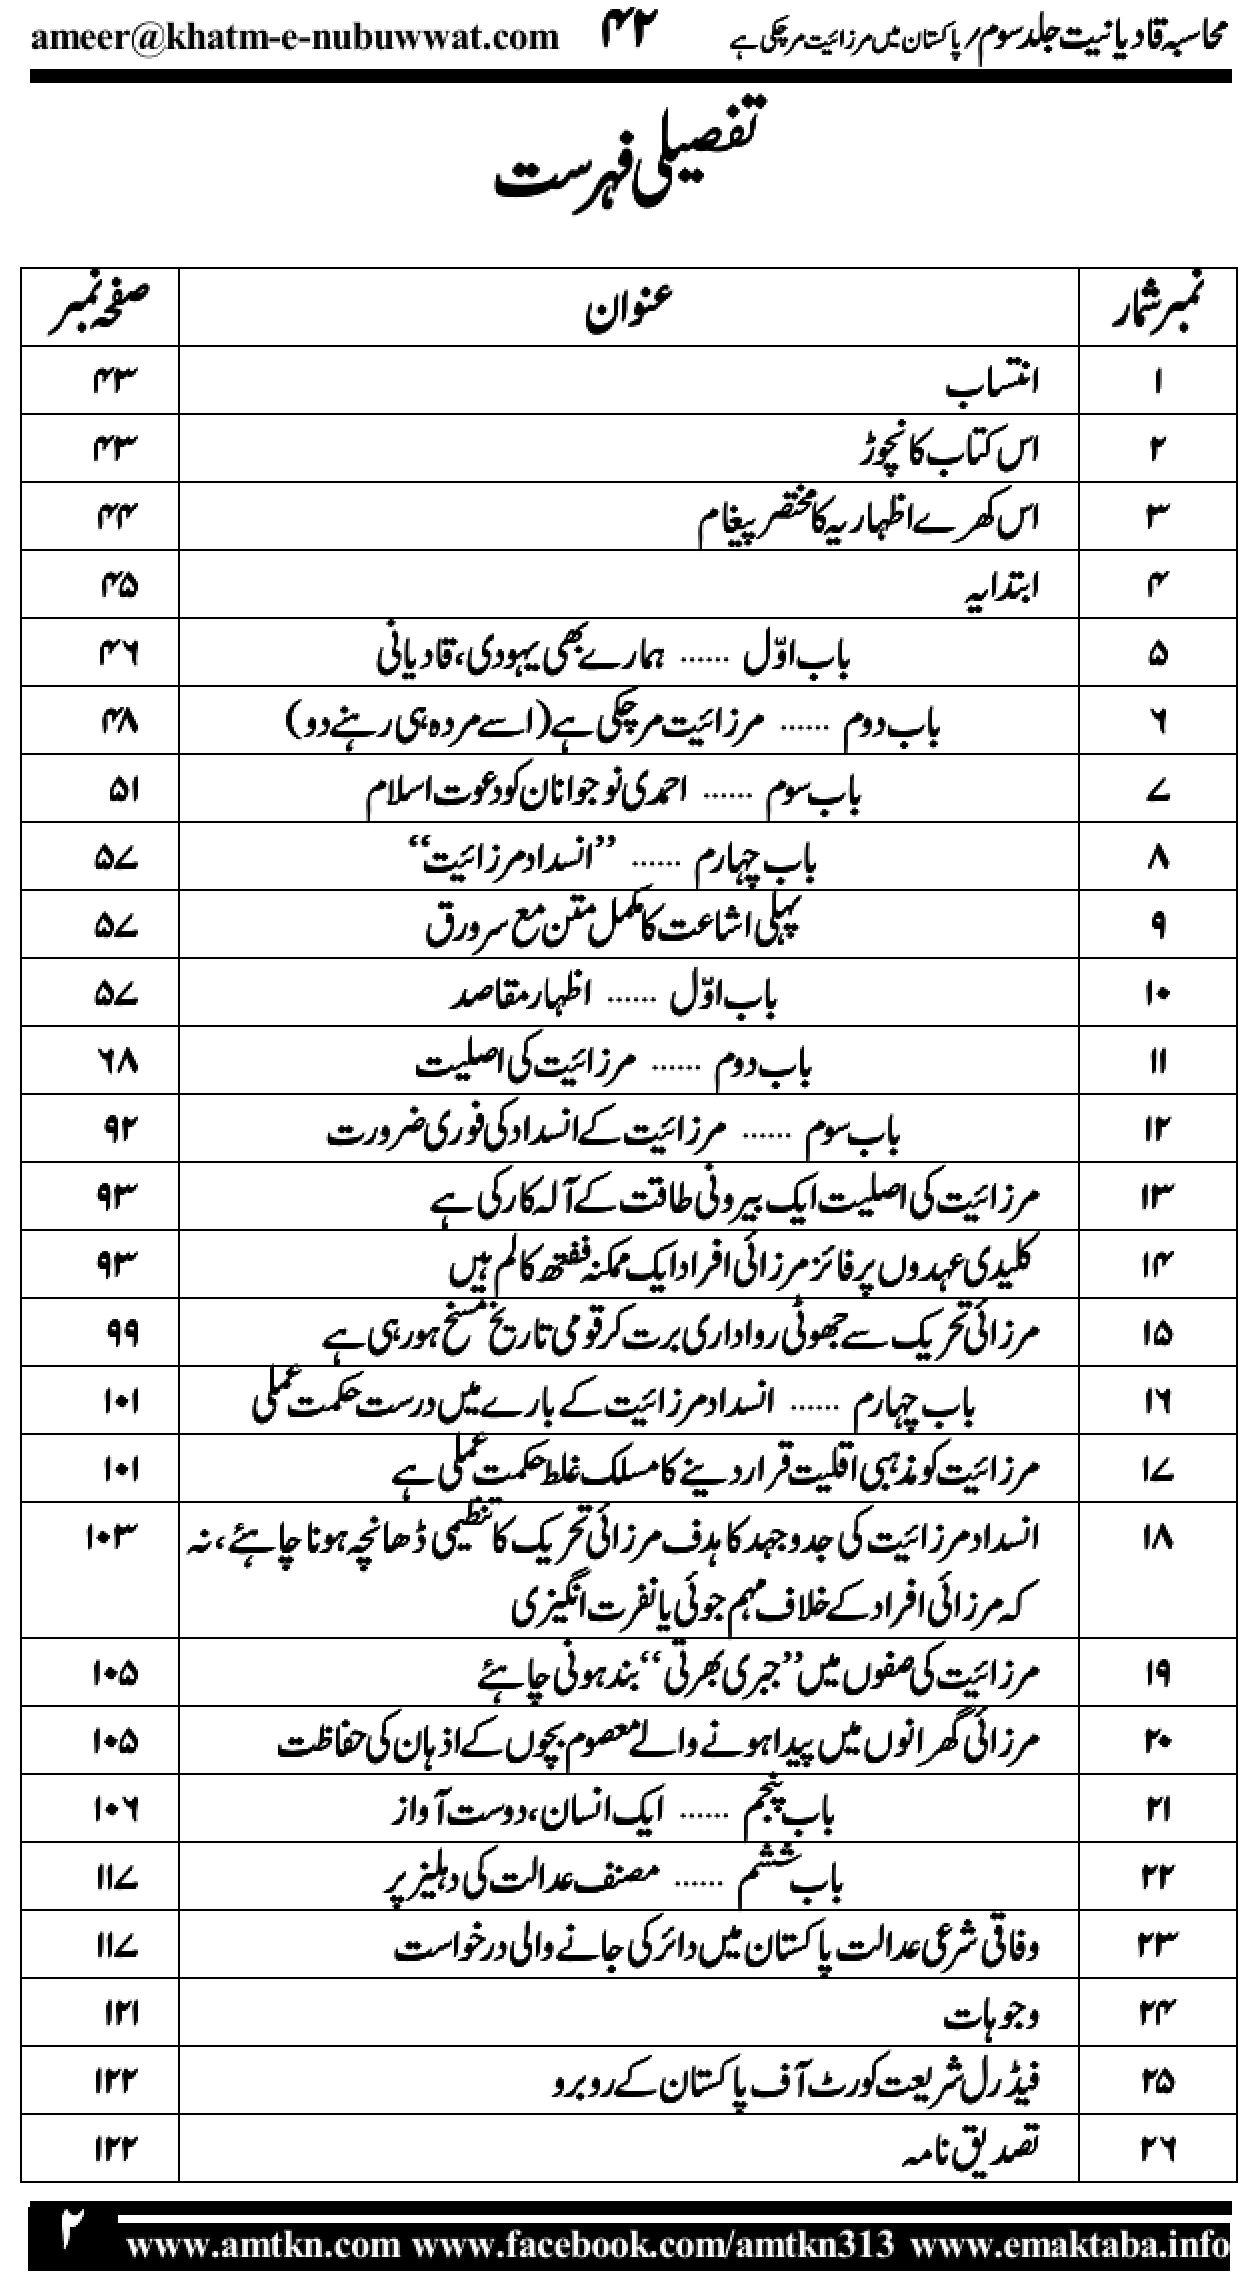 محاسبہ قادیانیت جلد سوم / پاکستان میں مرزائیت مرچکی ہے ۴۲ ameer@khatm-e-nubuwwat.com
تفصیلی فہرست
نمبر شمار عنوان صفحہ نمبر
۱ انتساب ۴۳
۲ اس کتاب کا نچوڑ ۴۳
۳ اس کھرے اظہاریہ کا مختصر پیغام ۴۴
۴ ابتدایہ ۴۵
۵ باب اوّل ...... ہمارے بھی یہودی، قادیانی ۴۶
۶ باب دوم ...... مرزائیت مرچکی ہے (اسے مردہ ہی رہنے دو) ۴۸
۷ باب سوم ...... احمدی نوجوانان کو دعوت اسلام ۵۱
۸ باب چہارم ...... ”انسداد مرزائیت“ ۵۷
۹ پہلی اشاعت کا مکمل متن مع سرورق ۵۷
۱۰ باب اوّل ...... اظہار مقاصد ۵۷
۱۱ باب دوم ...... مرزائیت کی اصلیت ۶۸
۱۲ باب سوم ...... مرزائیت کے انسداد کی فوری ضرورت ۹۲
۱۳ مرزائیت کی اصلیت ایک بیرونی طاقت کے آلہ کار کی ہے ۹۳
۱۴ کلیدی عہدوں پر فائز مرزائی افراد ایک ممکنہ ففتھ کالم ہیں ۹۳
۱۵ مرزائی تحریک سے جھوٹی رواداری برت کر قومی تاریخ مسخ ہورہی ہے ۹۹
۱۶ باب چہارم ...... انسداد مرزائیت کے بارے میں درست حکمت عملی ۱۰۱
۱۷ مرزائیت کو مذہبی اقلیت قرار دینے کا مسلک غلط حکمت عملی ہے ۱۰۱
۱۸ انسداد مرزائیت کی جدوجہد کا ہدف مرزائی تحریک کا تنظیمی ڈھانچہ ہونا چاہئے، نہ ۱۰۳
کہ مرزائی افراد کے خلاف مہم جوئی یا نفرت انگیزی
۱۹ مرزائیت کی صفوں میں ”جبری بھرتی“ بند ہونی چاہئے ۱۰۵
۲۰ مرزائی گھرانوں میں پیدا ہونے والے معصوم بچوں کے اذہان کی حفاظت ۱۰۵
۲۱ باب پنجم ...... ایک انسان، دوست آواز ۱۰۶
۲۲ باب ششم ...... مصنف عدالت کی دہلیز پر ۱۱۷
۲۳ وفاقی شرعی عدالت پاکستان میں دائر کی جانے والی درخواست ۱۱۷
۲۴ وجوہات ۱۲۱
۲۵ فیڈرل شریعت کورٹ آف پاکستان کے روبرو ۱۲۲
۲۶ تصدیق نامہ ۱۲۲
۲ www.amtkn.com www.facebook.com/amtkn313 www.emaktaba.info